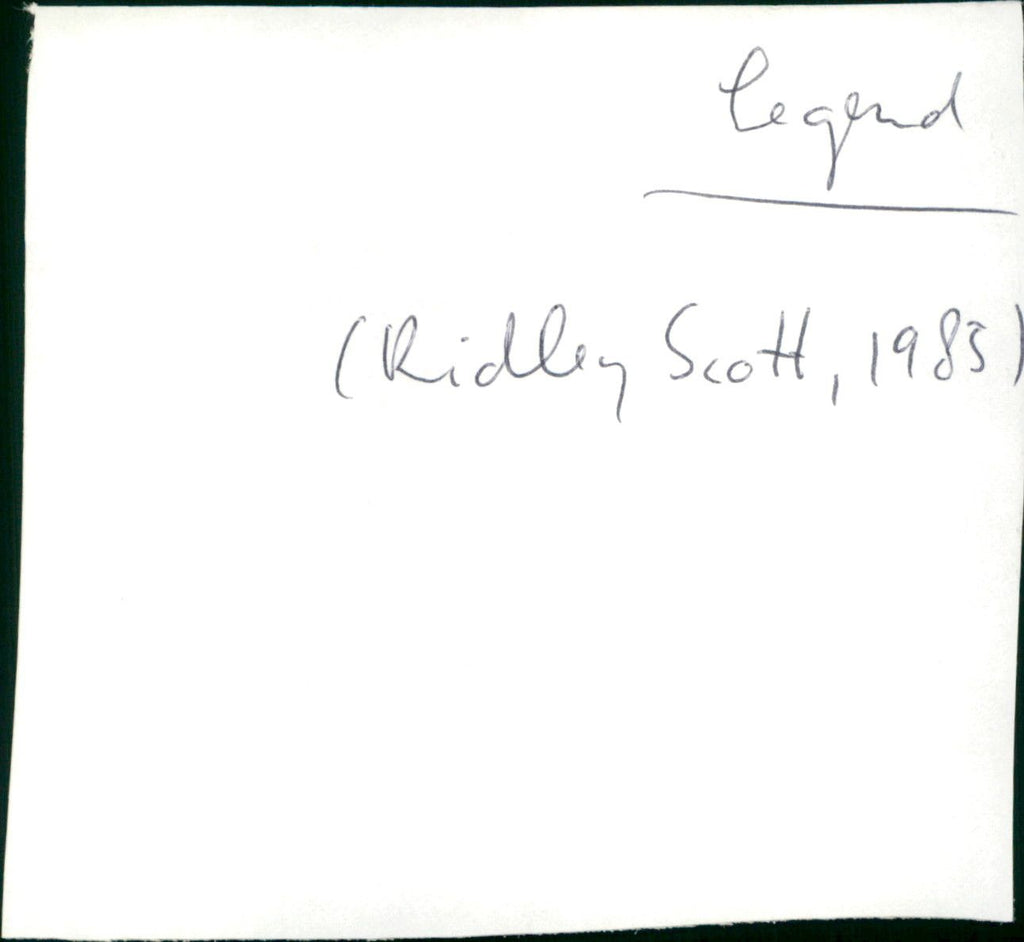 Legend
(Ridley Scott, 1985)